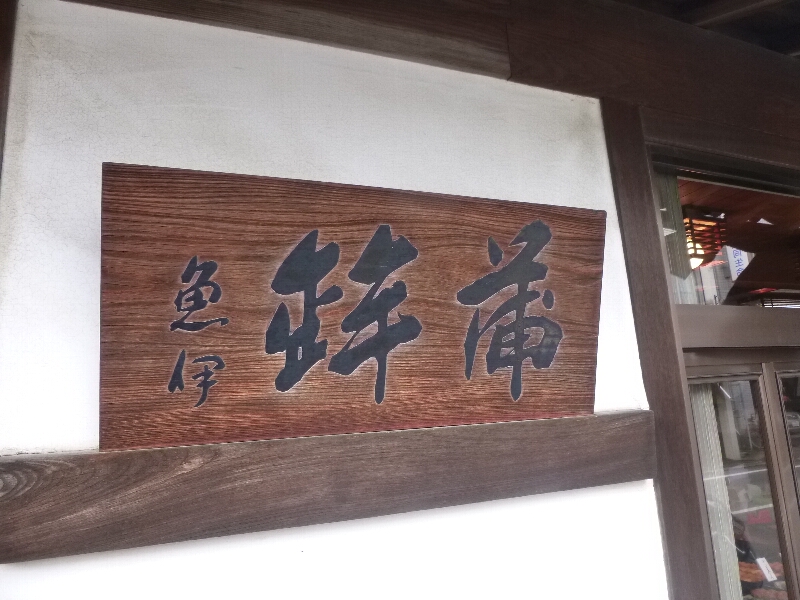 蒲鉾
魚伊